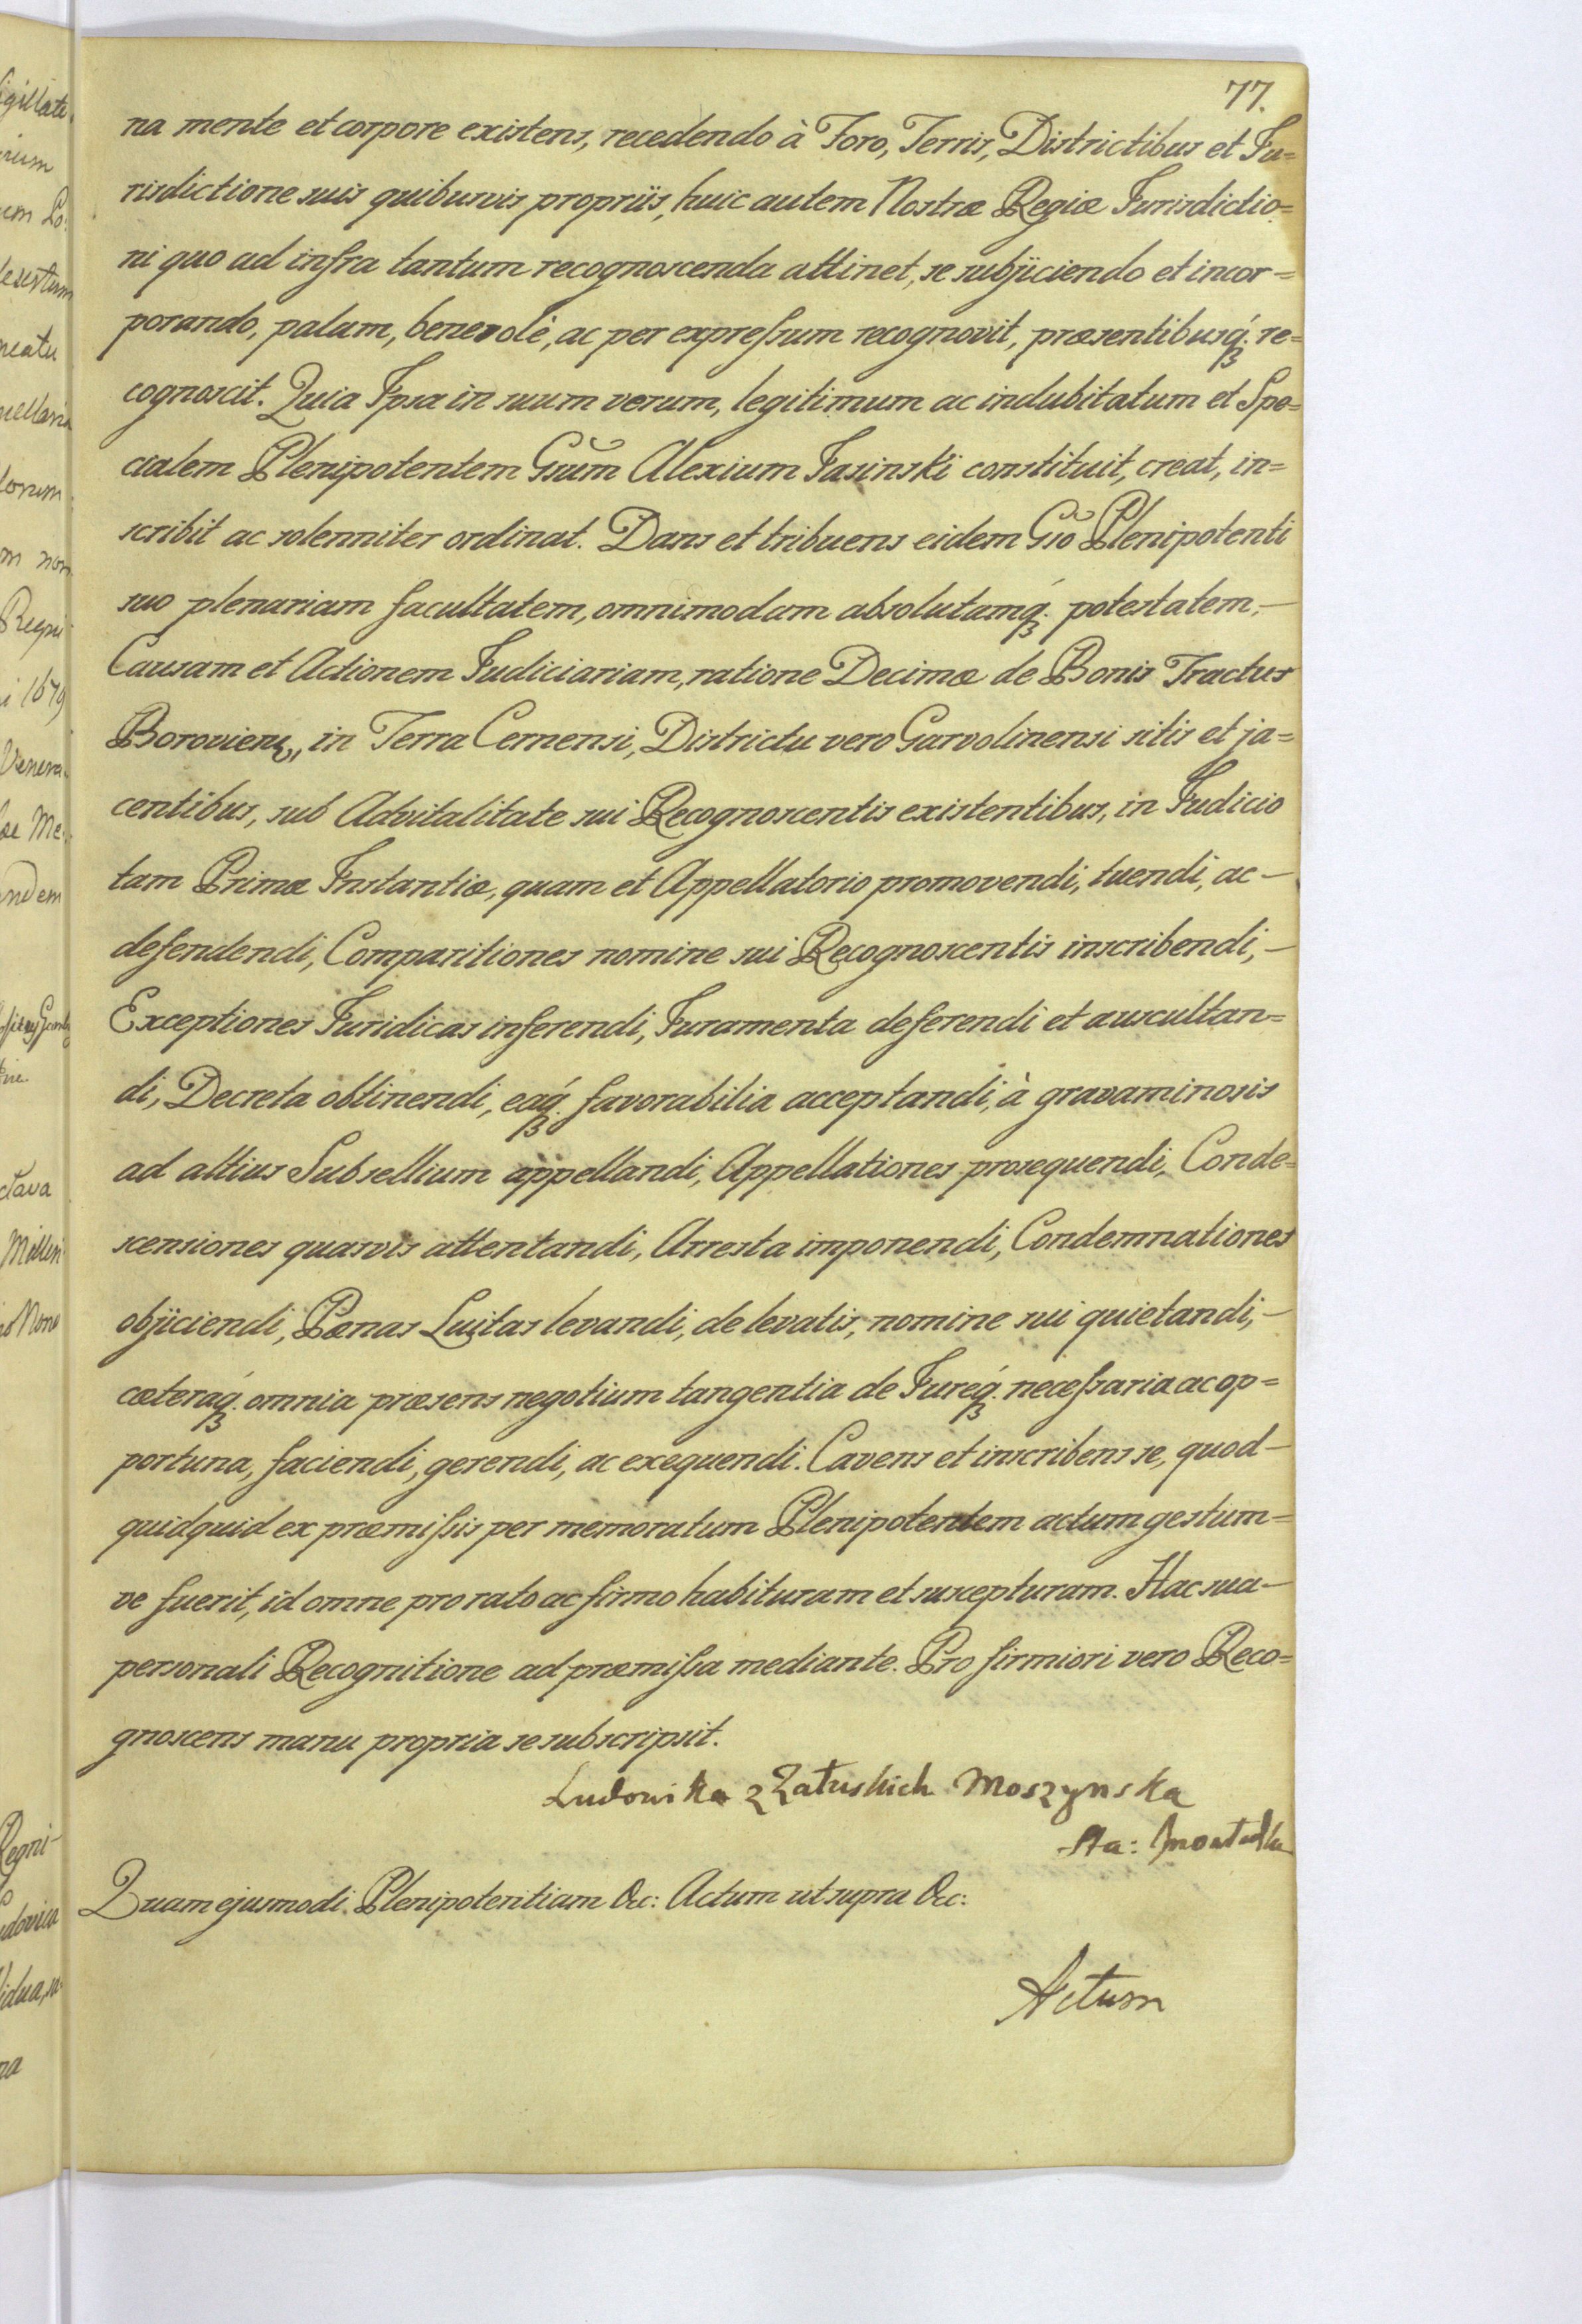 77.
na mente et corpore existens, recedendo à Foro, Terris, Districtibus et Ju=
risdictione suis quibusvis propriis, huic autem Nostræ Regiæ Jurisdictio=
ni quo ad infra tantum recognoscenda attinet, se subjiciendo et incor=
porando, palam, benevolè, ac per expreſsum recognovit, præsentibusq́; re=
cognoscit. Quia Ipsa in suum verum, legitimum ac indubitatum et Spe=
cialem Plenipotentem Gsum̃ Alexium Jasinski constituit, creat, in=
scribit ac solenniter ordinat. Dans et tribuens eidem Gso̅ Plenipotenti
suo plenariam facultatem, omnimodam absolutamq́; potestatem,—
Causam et Actionem Judiciariam, ratione Decimæ de Bonis Tractus
Boroviens, in Terra Cernensi, Districtu vero Garvolinensi sitis et ja=
centibus, sub Advitalitate sui Recognoscentis existentibus, in Judicio
tam Primæ Instantiæ, quam et Appellatorio promovendi, tuendi, ac—
defendendi, Comparitiones nomine sui Recognoscentis inscribendi,—
Exceptiones Juridicas inferendi, Juramenta deferendi et auscultan=
di, Decreta obtinendi, eaq́; favorabilia acceptandi, à gravaminosis
ad altius Subsellium appellandi, Appellationes prosequendi, Conde=
scensiones quasvis attentandi, Arresta imponendi, Condemnationes
objiciendi, Pænas Luitas levandi, de levatis, nomine sui quietandi,—
cæteraq́; omnia præsens negotium tangentia de Jureq́; neceſsaria ac op=
portuna, faciendi, gerendi, ac exequendi. Cavens et inscribens se, quod—
quidquid ex præmiſsis per memoratum Plenipotentem actum gestum=
ve fuerit, id omne pro rato ac firmo habituram et suscepturam. Hac sua—
personali Recognitione ad præmiſsa mediante. Pro firmiori vero Reco=
gnoscens manu propria se subscripsit.
Ludowika z Załuskich Moszynska
Sta:
Quam ejusmodi Plenipotentiam &c: Actum ut supra &c:
Actum